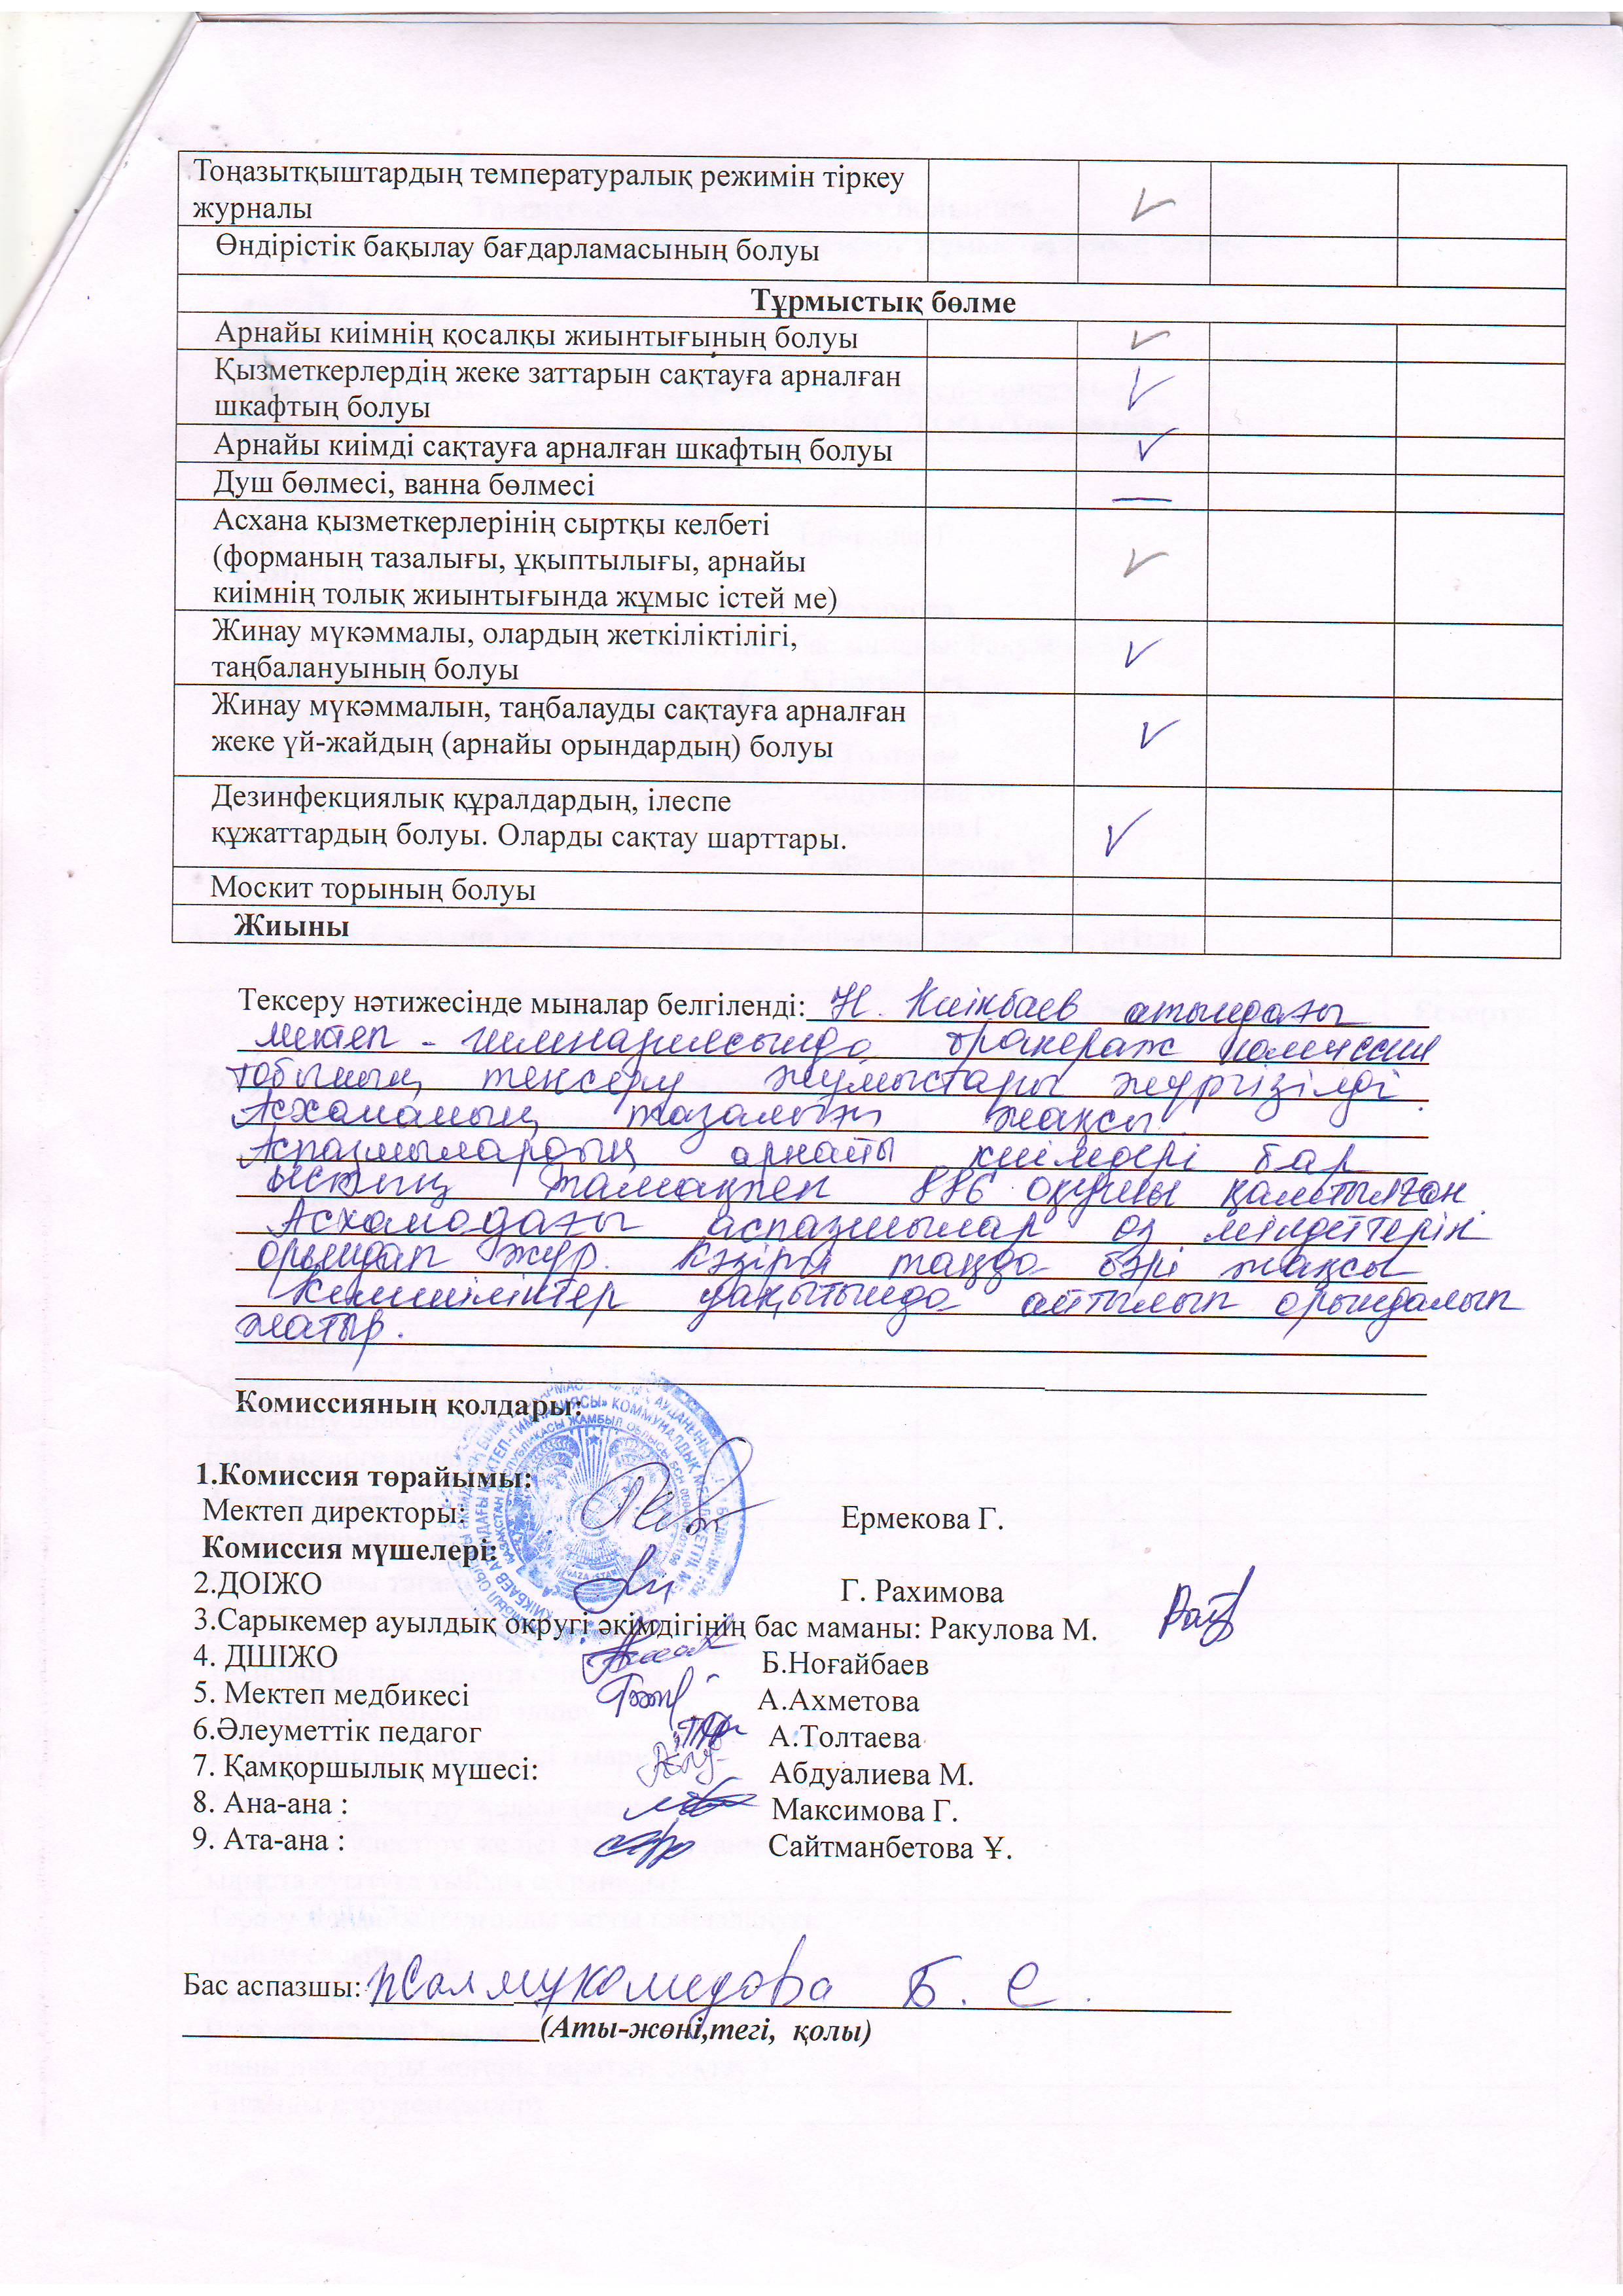 Тоңазытқыштардың температуралық режимін тіркеу
журналы ✓
Өндірістік бақылау бағдарламасының болуы
Тұрмыстық бөлме
Арнайы киімнің қосалқы жиынтығының болуы ✓
Қызметкерлердің жеке заттарын сақтауға арналған
шкафтың болуы ✓
Арнайы киімді сақтауға арналған шкафтың болуы ✓
Душ бөлмесі, ванна бөлмесі —
Асхана қызметкерлерінің сыртқы келбеті
(форманың тазалығы, ұқыптылығы, арнайы ✓
киімнің толық жиынтығында жұмыс істей ме)
Жинау мүкәммалы, олардың жеткіліктілігі,
таңбалануының болуы ✓
Жинау мүкәммалын, таңбалауды сақтауға арналған
жеке үй-жайдың (арнайы орындардың) болуы ✓
Дезинфекциялық құралдардың, ілеспе
құжаттардың болуы. Оларды сақтау шарттары. ✓
Москит торының болуы
Жиыны
Тексеру нәтижесінде мыналар белгіленді: Н. Киікбаев атындағы
мектеп - гимназиясында бракераж комиссия
тобының тексеру жұмыстары жүргізілді.
Асхананың тазалығы жақсы.
Аспазшылардың арнайы киімдері бар
ыстық тамақпен 886 оқушы қамтылған.
Асханадағы аспазшылар өз міндеттерін
орындап жүр. Кәзіргі таңда бәрі жақсы
Кемшіліктер уақытында айтылып орындалып
жатыр.
Комиссияның қолдары:
1.Комиссия төрайымы:
Мектеп директоры: Ермекова Г.
Комиссия мүшелері:
2.ДОІЖО Г. Рахимова
3.Сарыкемер ауылдық округі әкімдігінің бас маманы: Ракулова М.
4. ДШІЖО Б.Ноғайбаев
5. Мектеп медбикесі А.Ахметова
6.Әлеуметтік педагог А.Толтаева
7. Қамқоршылық мүшесі: Абдуалиева М.
8. Ана-ана : Максимова Г.
9. Ата-ана : Сайтманбетова Ұ.
Бас аспазшы: Жалмухамедова Б. С.
(Аты-жөні,тегі, қолы)